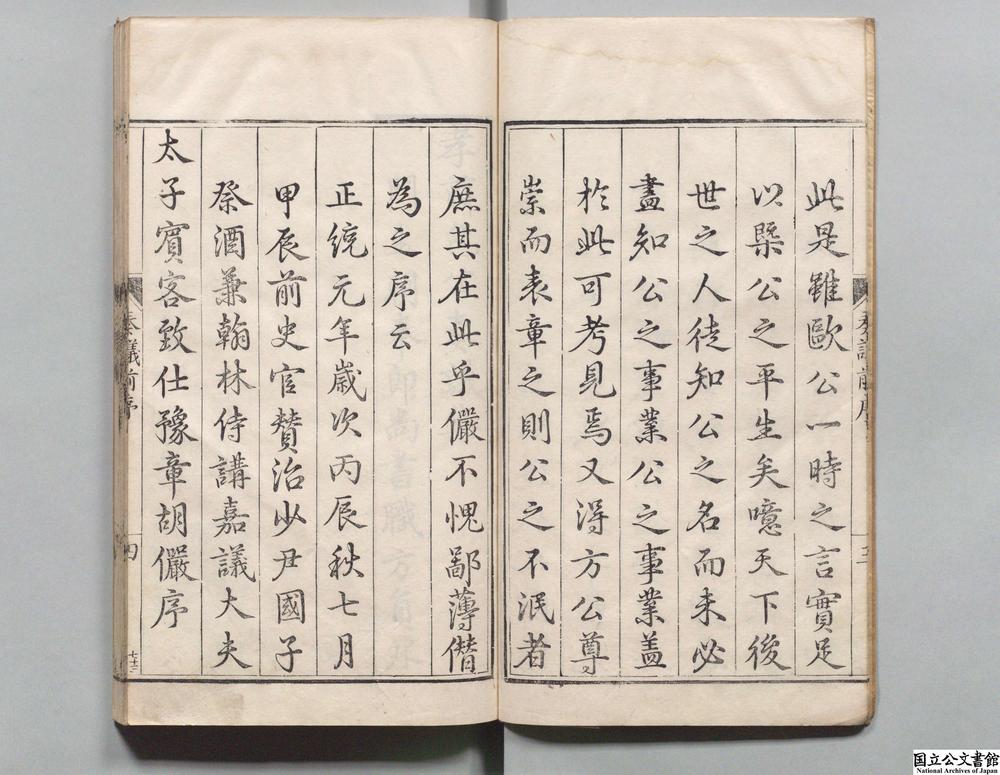 此是雖歐公一時之言實足
以槩公之平生矣噫天下後
世之人徒知公之名而未必
盡知公之事業公之事業盖
於此可考見焉又得方公尊
崇而表章之則公之不泯者
庶其在此乎儼不愧鄙薄僣
為之序云
正統元年歲次丙辰秋七月
甲辰前史官贊治少尹國子
祭酒兼翰林侍講嘉議大夫
太子賓客致仕豫章胡儼序
奏議前序
四
国立公文書館
National Archives of Japan